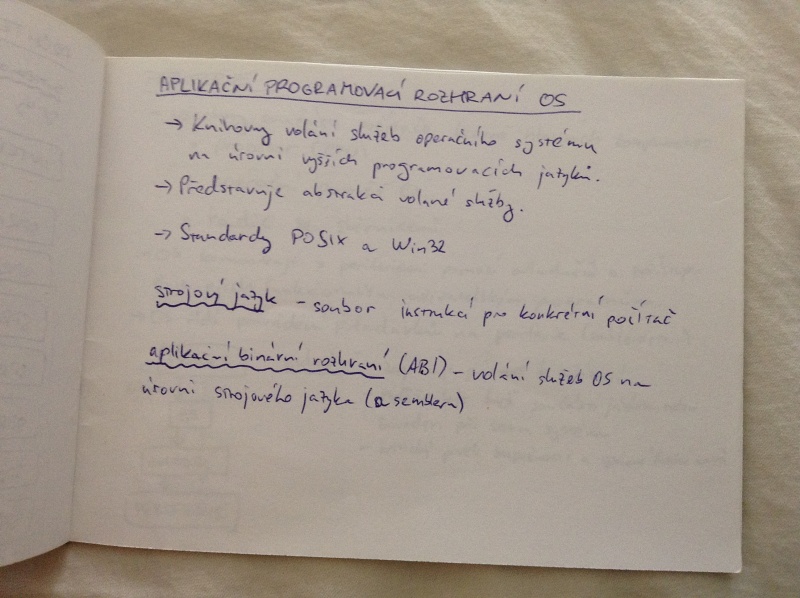 APLIKAČNÍ PROGRAMOVACÍ ROZHRANÍ OS
→ Knihovny volání služeb operačního systému
na úrovni vyšších programovacích jazyků.
→ Představuje abstrakci volané služby.
→ Standardy POSIX a Win32
strojový jazyk - soubor instrukcí pro konkrétní počítač
aplikační binární rozhraní (ABI) - volání služeb OS na
úrovni strojového jazyka (asembleru)